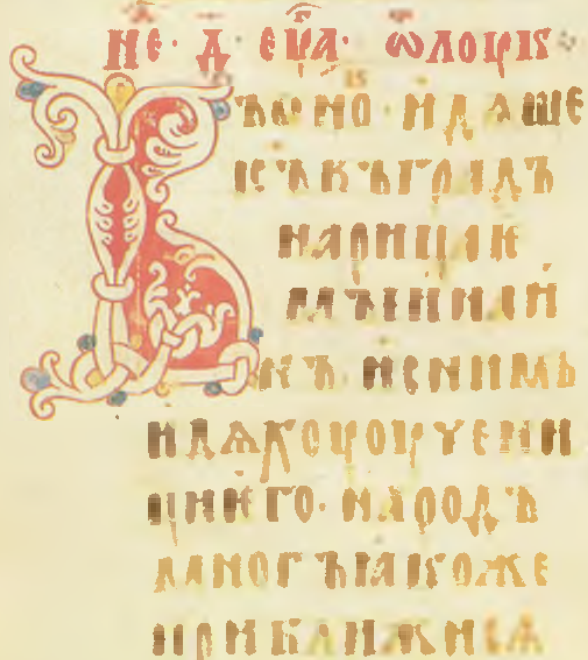 НЕ· Д· ЕѴА· ѠЛОУК
ВЪ ОНО· ИДѦШЕ
ІСЪ ВЪ ГРАДЪ
НАРИЦАѤ
МЪІИ НАИ
НЪ ИСНИМЬ
ИДѦХОУ ОУЧЕНИ
ЦИ ѤГО· НАРОДЪ
МНОГЪ ꙖКОЖЕ
ПРИБЛИЖИСѦ